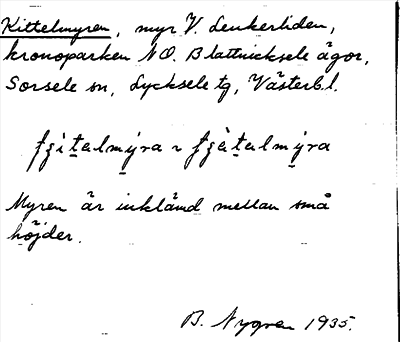 Kittelmyren, myr V. Lenkerliden,
kronoparken NO. Blattnicksele ägor,
Sorsele sn, Lycksele tg, Västerb.l.
Myren är inklämd mellan små
höjder.
B. Nygren 1935.